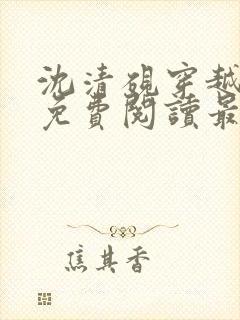 沈清硯穿越
免費閱讀最
焦其香